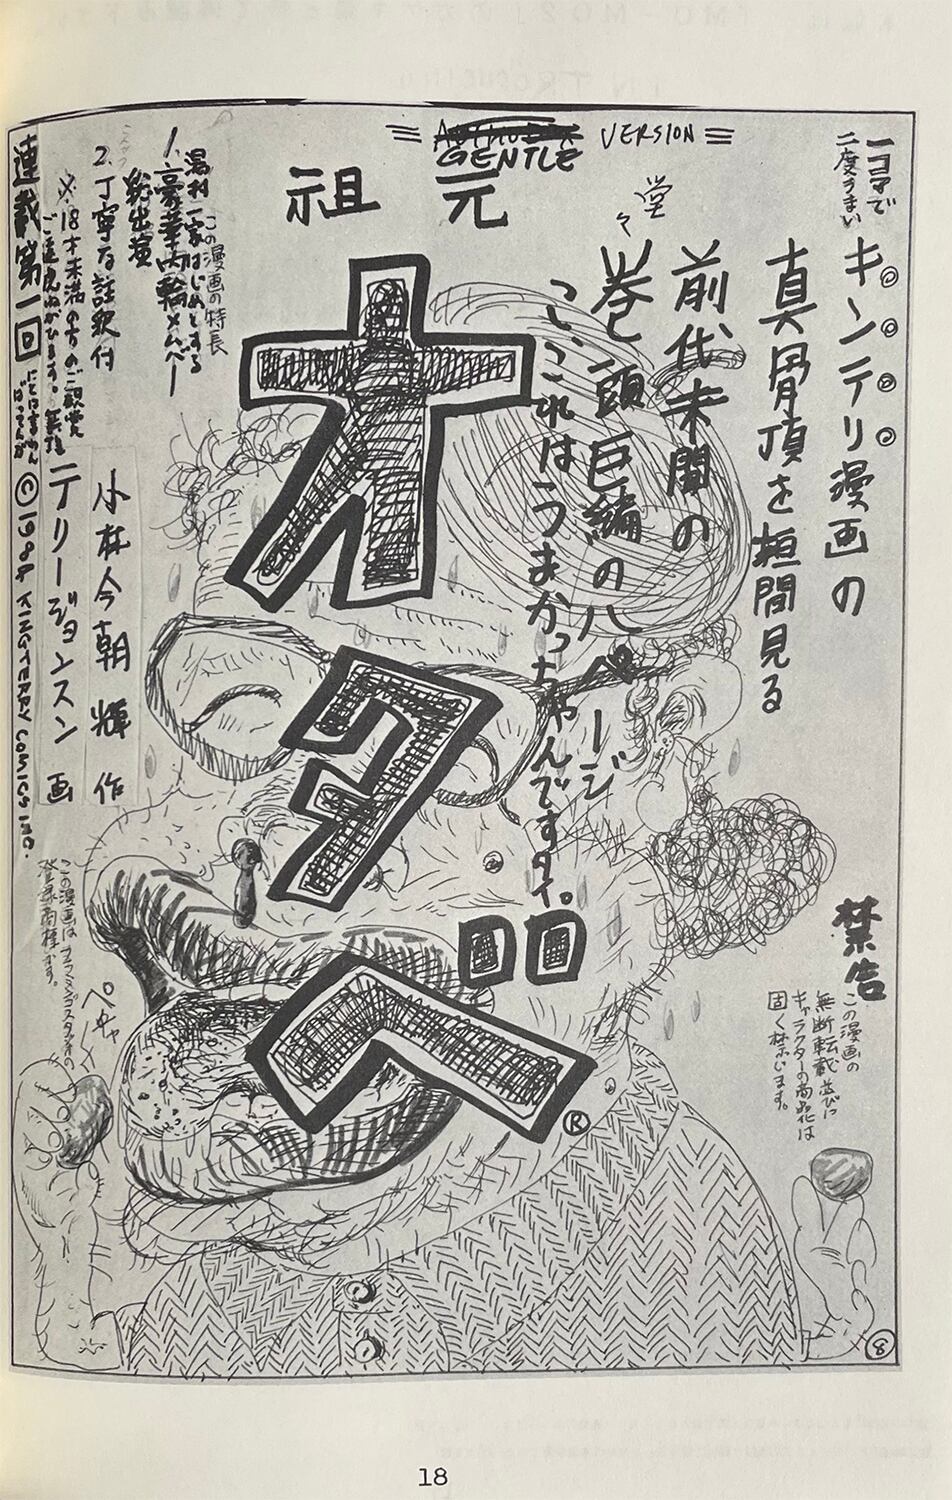 GENTLE VERSION
祖元
オタベ
一コマで
二度うまい
キンテリ漫画の
真骨頂を垣間見る
前代未聞の
堂々
巻頭巨編の八ページ
こここれはうまかっちゃんですタイ。
禁告
この漫画の
無断転載並びに
キャラクターの商品化は
固く禁じます。
®
8
この漫画の特長
湯村一家はじめとする
1.豪華内輪メンバー
総出演
2.丁寧な註釈付
※18才未満の方のご観覧
ご遠慮ねがひます。
小林今朝輝 作
テリージョンスン 画
連載第一回
©1984 KINGTERRY COMICS INC.
この漫画は
登録商標です。
ペチャ
18